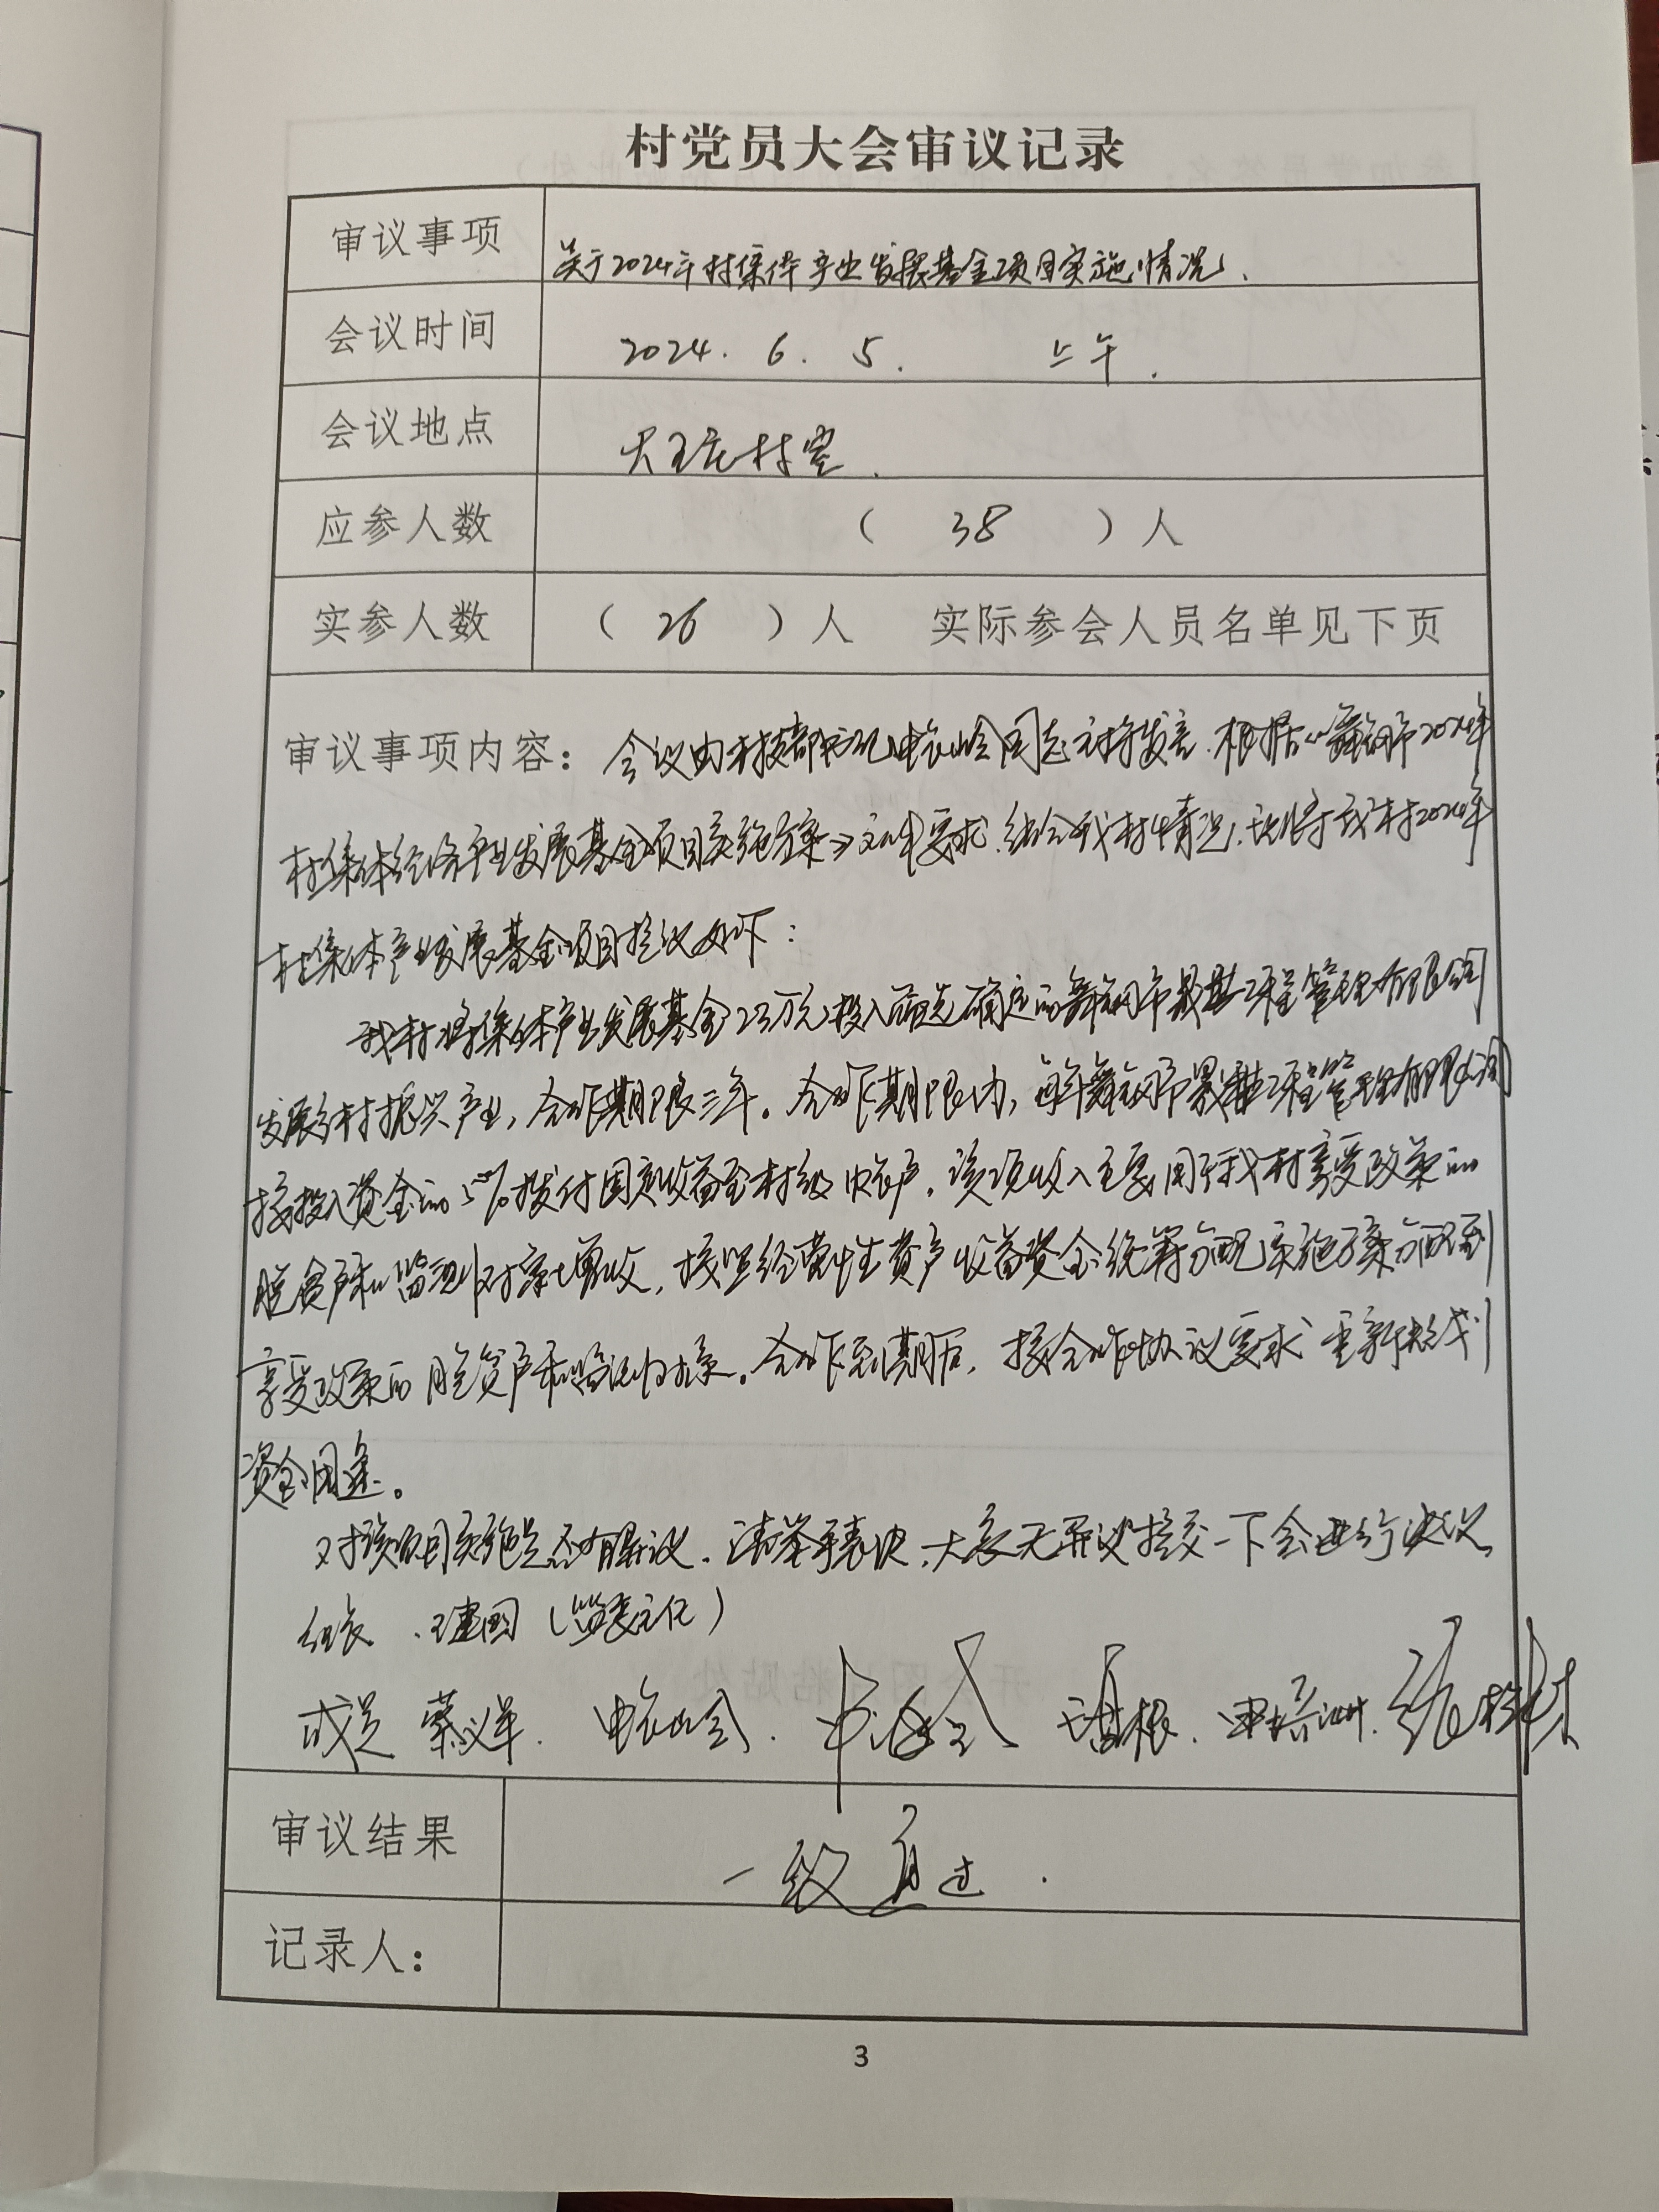 村党员大会审议记录
审议事项 关于2024年村集体产业发展基金项目实施情况.
会议时间 2024. 6. 5. 上午.
会议地点 大王庄村室.
应参人数 ( 38 ) 人
实参人数 ( 26 ) 人 实际参会人员名单见下页
审议事项内容: 会议由村支部书记 同志主持发言. 根据《舞钢市2024年
村集体经济产业发展基金项目实施方案》文件要求.结合我村情况,现将我村2024年
村集体产业发展基金项目提议如下:
我村将集体产业发展基金23万元投入筛选确定的舞钢市 工程管理有限公司
发展乡村振兴产业,合作期限三年。合作期限内,每年舞钢市 工程管理有限公司
按投入资金的5%拨付固定收益至村级账户.该项收入主要用于我村享受政策的
脱贫户和监测对象增收,按照经营性资产收益资金统筹分配实施方案分配到
享受政策的脱贫户和监测对象。合作到期后,按合作协议要求重新规划
资金用途。
对该项目实施是否有异议.请举手表决.大家无异议提交下一会进行决议.
组长 .王建国(监委主任)
成员 蔡义军.
审议结果 一致通过.
记录人:
3